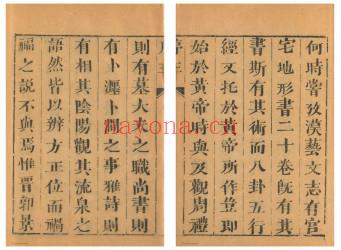 何時嘗攷漢藝文志有宮
宅地形書二十卷旣有其
書斯有其術而八卦五行
經又托於黃帝所作豈卽
始於黃帝時與及觀周禮
則有墓大夫之職尚書則
有卜瀍卜澗之事雅詩則
有相其陰陽觀其流泉之
語然皆以辨方正位而禍
福之說不與焉惟晋郭景
nayona.cn